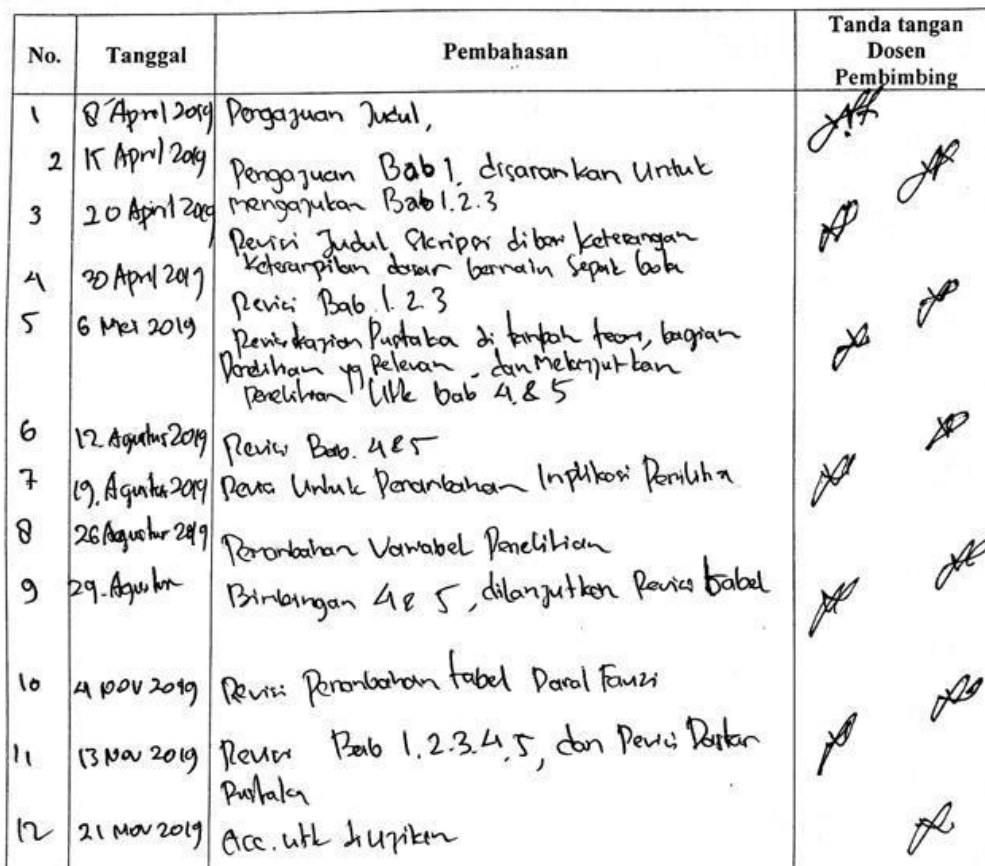 No. Tanggal Pembahasan Tanda tangan
Dosen
Pembimbing
1 8 April 2019 Pengajuan Judul,
2 15 April 2019 Pengajuan Bab 1, disarankan Untuk
mengajukan Bab 1.2.3
3 20 April 2019 Revisi Judul Skripsi diberi keterangan
keterampilan dasar bermain sepak bola
4 30 April 2019 Revisi Bab. 1. 2. 3
5 6 Mei 2019 Revisi kajian Pustaka di tambah teori, bagian
Penelitian yg Relevan, dan Melanjutkan
penelitian Utk bab 4 & 5
6 12 Agustus 2019 Revisi Bab. 4 & 5
7 19. Agustus 2019 Revisi Untuk Penambahan Implikasi
8 26 Agustus 2019 Penambahan Variabel Penelitian
9 29. Agustus Bimbingan 4 & 5, dilanjutkan Revisi tabel
10 4 NOV 2019 Revisi Penambahan tabel
11 13 Nov 2019 Revisi Bab 1.2.3.4.5, dan Revisi
Pustaka
12 21 Nov 2019 Acc. utk diujikan